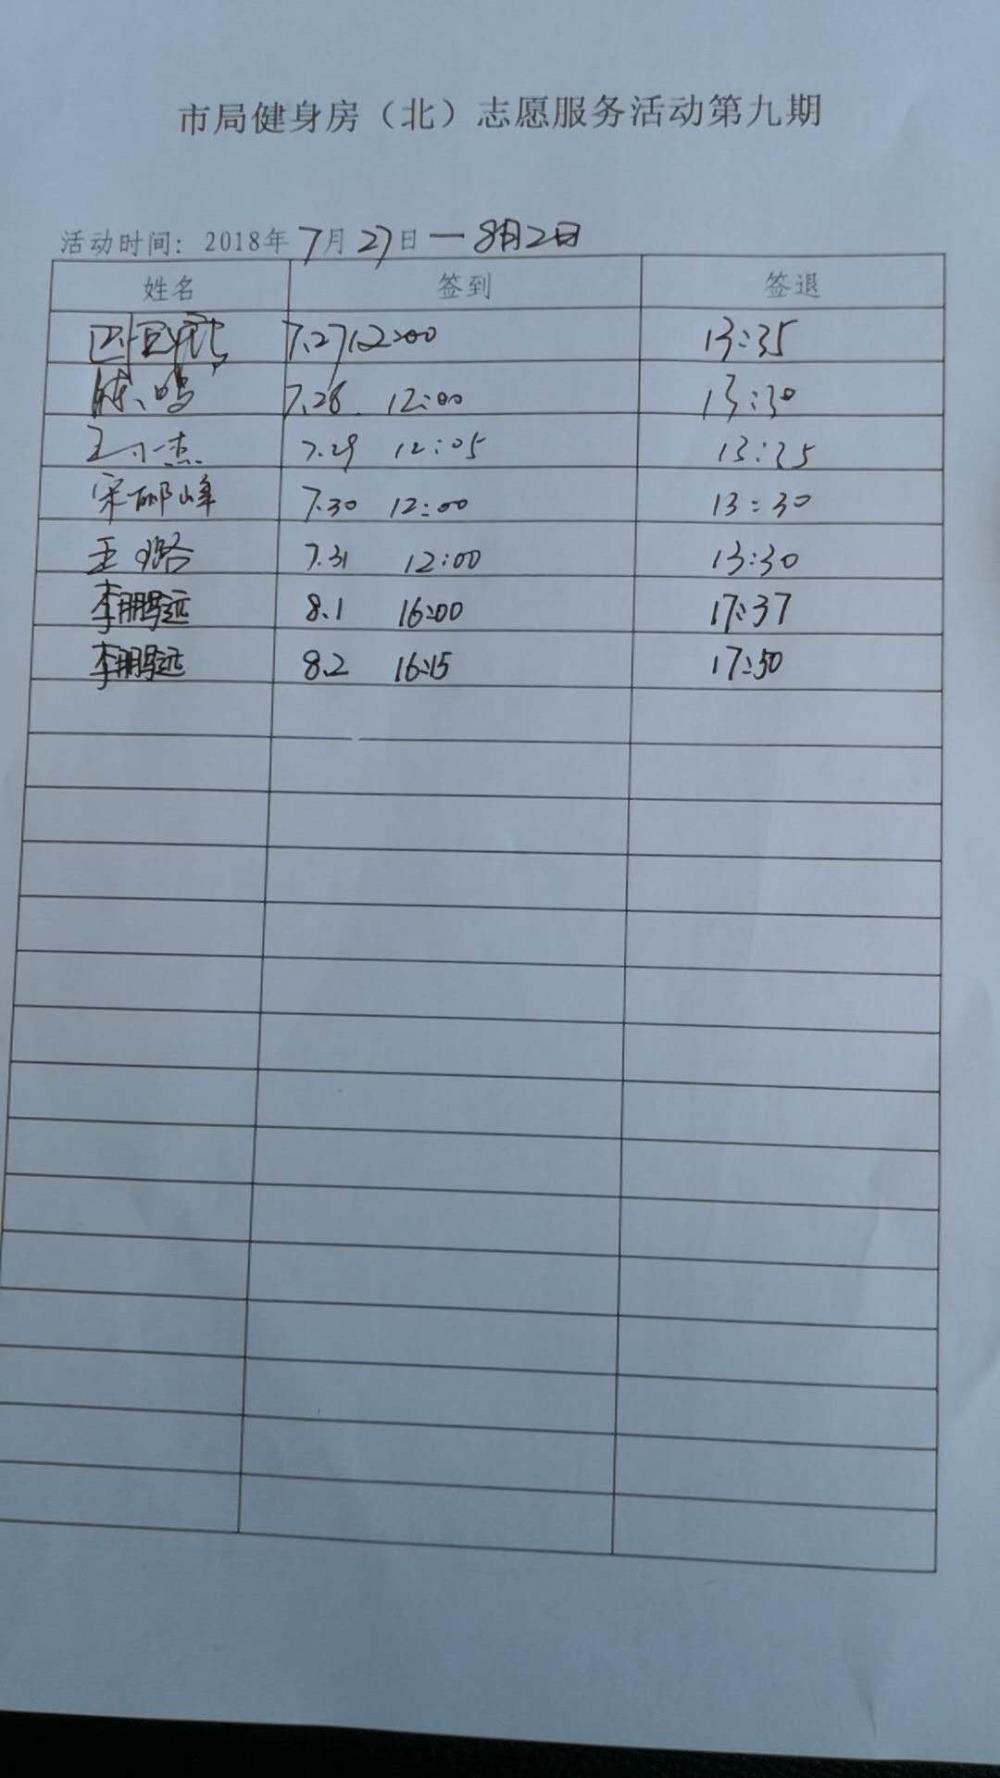 市局健身房（北）志愿服务活动第九期
活动时间：2018年7月27日一8月2日
姓名 签到 签退
7.27 12:00 13:35
陈鸣 7.28 12:00 13:30
王小杰 7.29 12:05 13:35
宋 峰 7.30 12:00 13:30
王璐 7.31 12:00 13:30
李鹏远 8.1 16:00 17:37
李鹏远 8.2 16:15 17:50